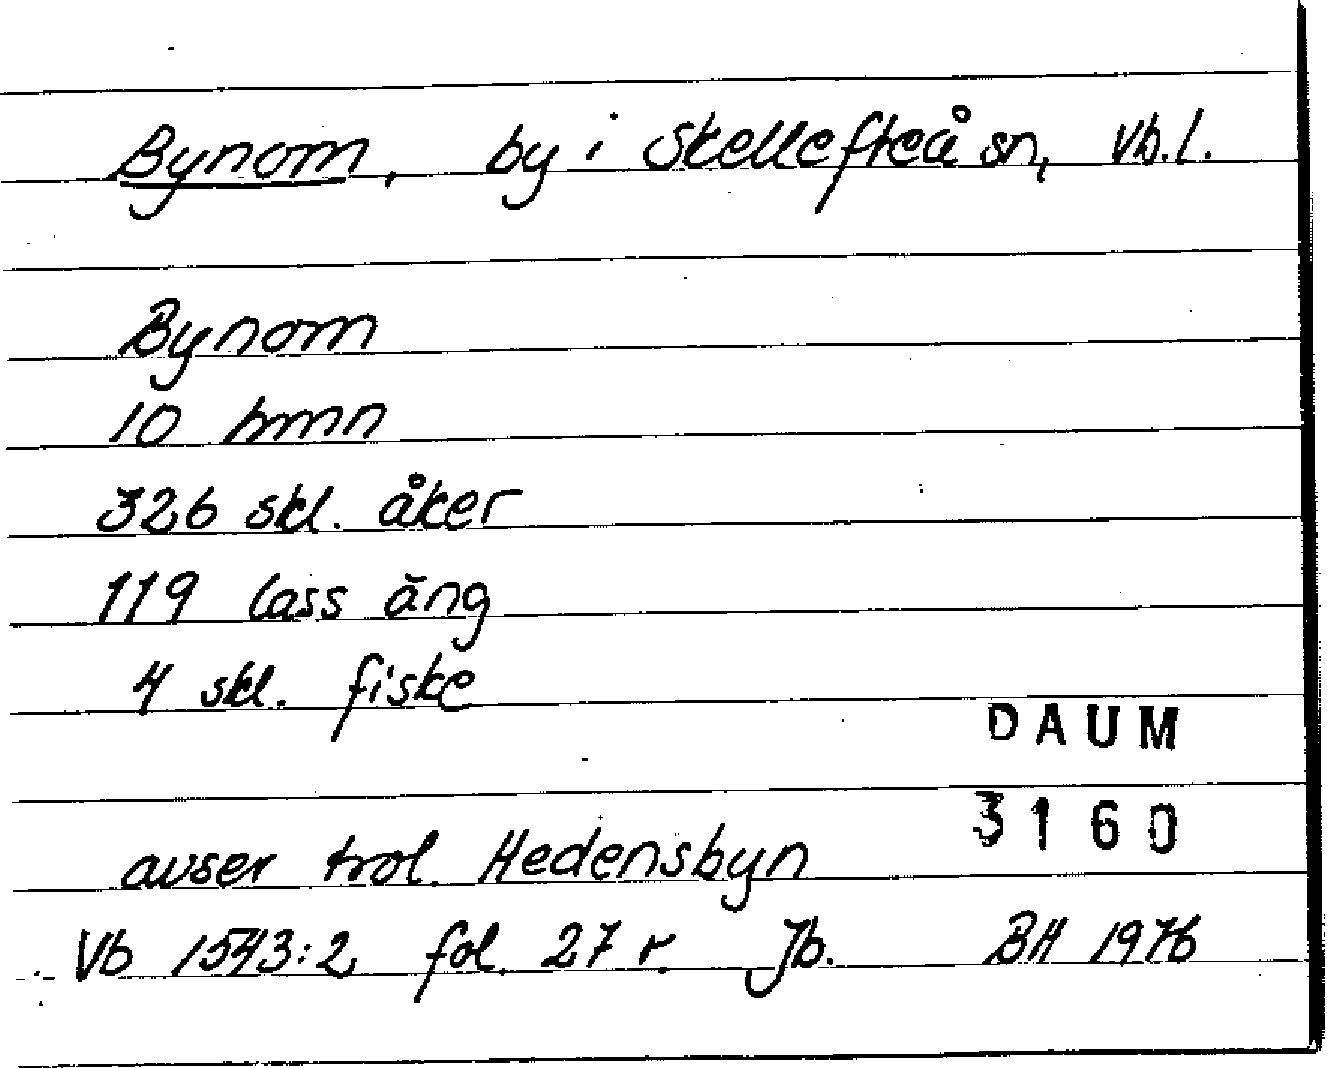 Bynom, by i Skellefteå sn, Vb.l.
Bynom
10 hmn
326 skl. åker
119 lass äng
4 skl. fiske
DAUM
3160
avser trol. Hedensbyn
Vb 1543:2 fol. 27 r. Jb. BH 1976